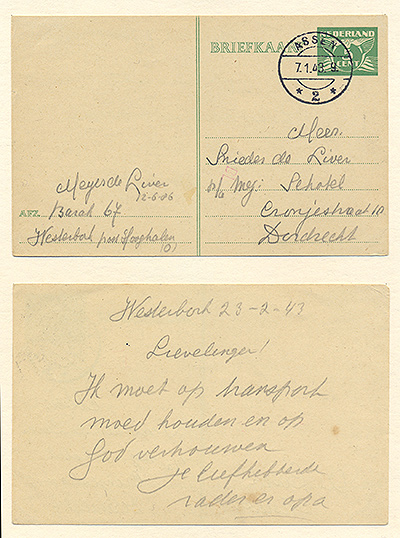 BRIEFKAA
NEDERLAND
CENT
ASSEN
7.1.43. 9.
* 2 *
Meer.
Snieder de Liver
p/a Mej: Schotel
Cronjestraat 10
Dordrecht
Meyer de Liver
12-6-86
AFZ. Barak 67
Westerbork post Hooghalen
(D)
Westerbork 23-2-43
Lievelinger!
Ik moet op transport
moed houden en op
God verhouwen
je liefhebbende
vader en opa